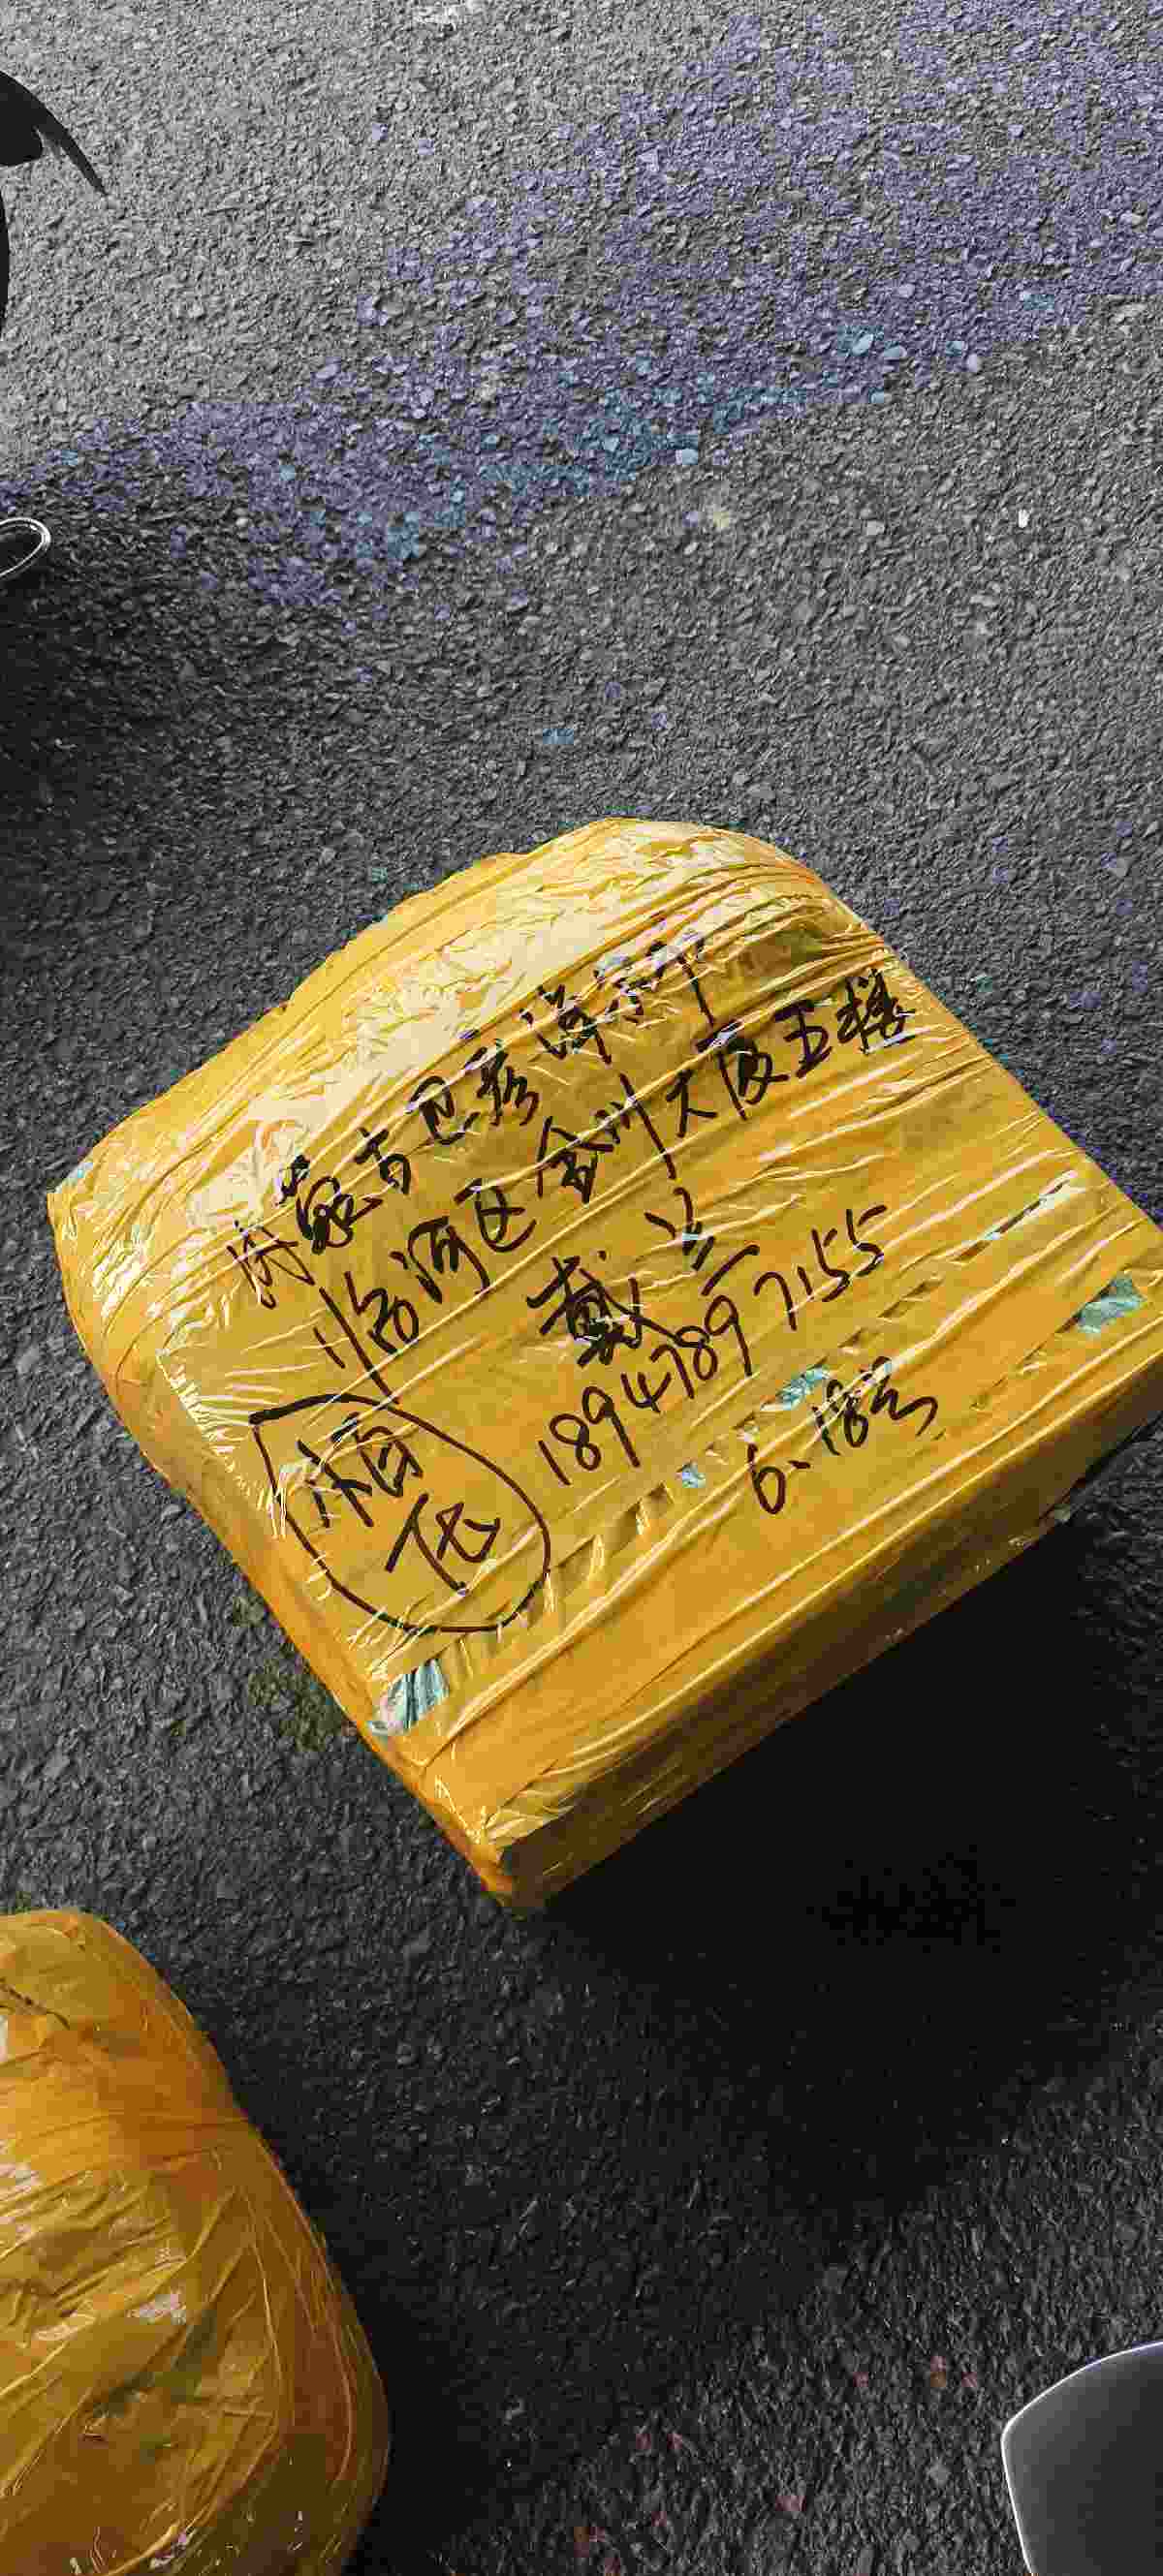 内蒙古巴彦淖尔
临河区金川大厦五楼
戴兰
18947897155
6.18号